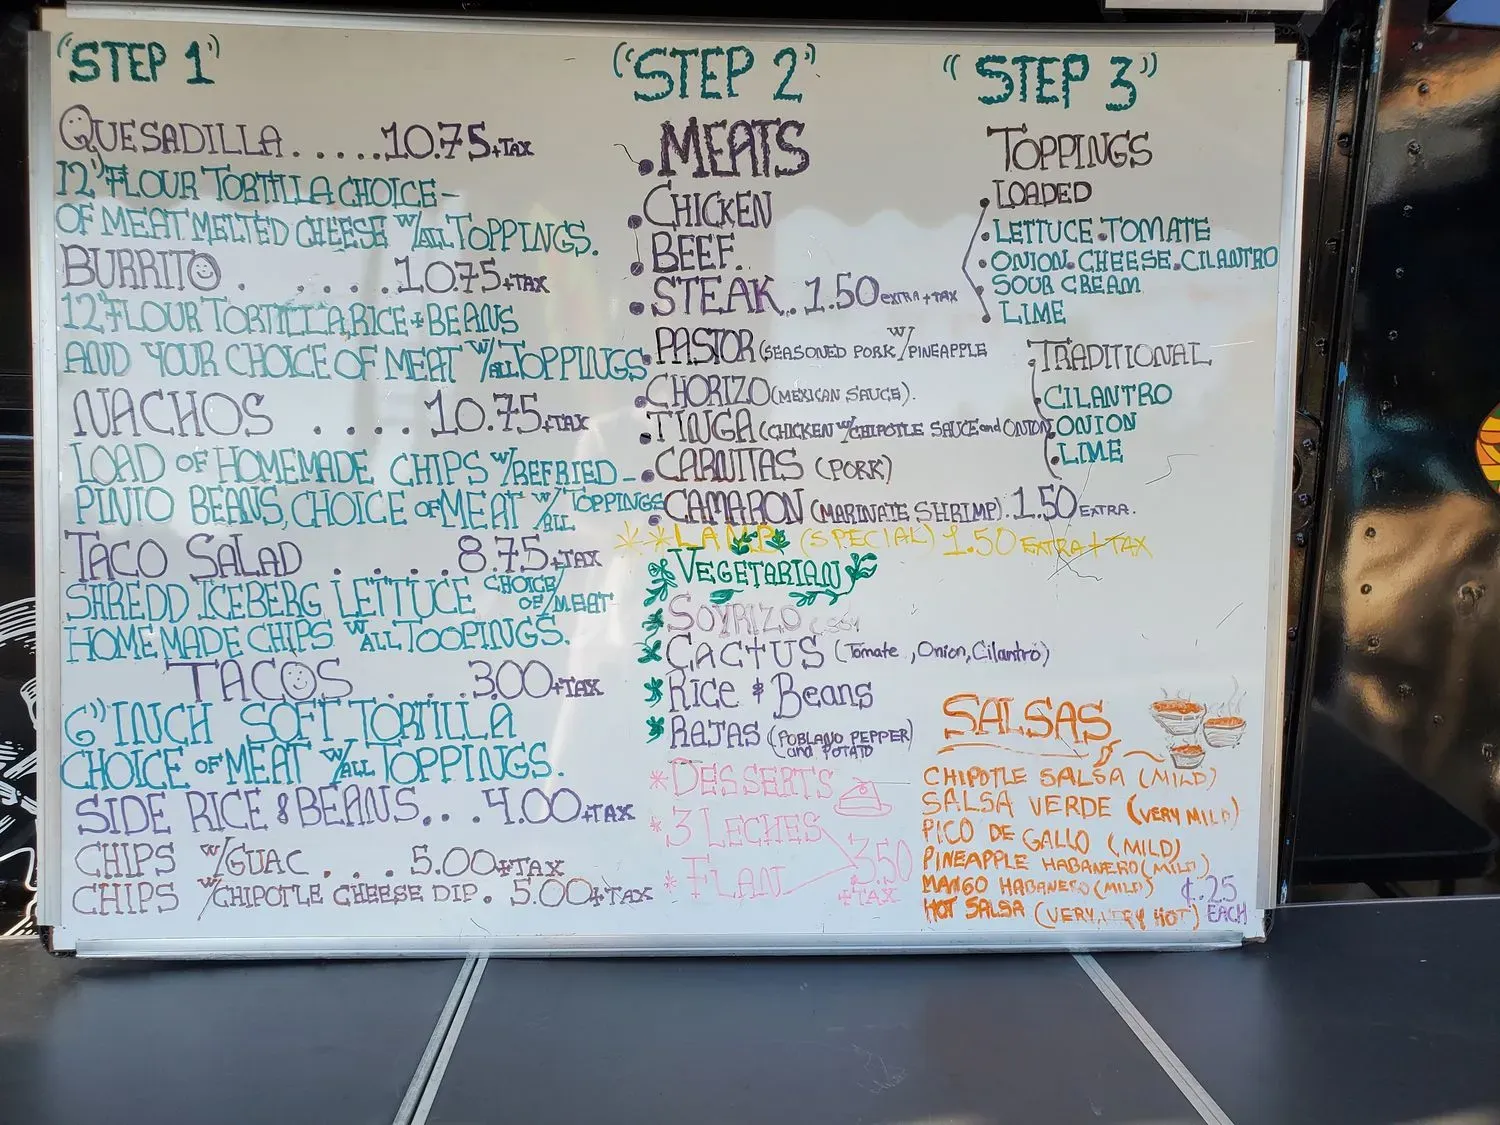 "STEP 1"
QUESADILLA.....10.75+TAX
12" FLOUR TORTILLA CHOICE-
OF MEAT MELTED CHEESE W/ALL TOPPINGS.
BURRITO. . . . .10.75+TAX
12" FLOUR TORTILLA, RICE + BEANS
AND YOUR CHOICE OF MEAT W/ALL TOPPINGS
NACHOS . . . . 10.75+TAX
LOAD OF HOMEMADE CHIPS W/REFRIED-
PINTO BEANS, CHOICE OF MEAT W/ALL TOPPINGS
TACO SALAD . . . . . 8.75+TAX
SHREDD ICEBERG LETTUCE CHOICE OF/MEAT
HOMEMADE CHIPS W/ALL TOOPINGS.
TACOS . . . . 3.00+TAX
6" INCH SOFT TORTILLA
CHOICE OF MEAT W/ALL TOPPINGS.
SIDE RICE & BEANS... 4.00+TAX
CHIPS W/GUAC . . . 5.00+TAX
CHIPS W/CHIPOTLE CHEESE DIP. 5.00+TAX
"STEP 2"
MEATS
CHICKEN
BEEF.
STEAK.. 1.50 EXTRA+TAX
PASTOR (SEASONED PORK W/PINEAPPLE
CHORIZO (MEXICAN SAUCE).
TINGA (CHICKEN W/CHIPOTLE SAUCE and ONION
CARNITAS (PORK)
CAMARON (MARINATE SHRIMP). 1.50 EXTRA.
**LAMB (SPECIAL) 1.50 EXTRA+TAX
VEGETARIAN
SOYRIZO
CACTUS (Tomate, Onion, Cilantro)
Rice & Beans
RAJAS (POBLANO PEPPER and POTATO
*DESSERTS
*3 LECHES
*FLAN
3.50
+TAX
"STEP 3"
TOPPINGS
LOADED
LETTUCE.TOMATE
ONION.CHEESE.CILANTRO
SOUR CREAM
LIME
TRADITIONAL
CILANTRO
ONION
LIME
SALSAS
CHIPOTLE SALSA (MILD)
SALSA VERDE (VERY MILD)
PICO DE GALLO (MILD)
PINEAPPLE HABANERO (MILD)
MANGO HABANERO (MILD)
HOT SALSA (VERY, VERY HOT)
¢.25
EACH